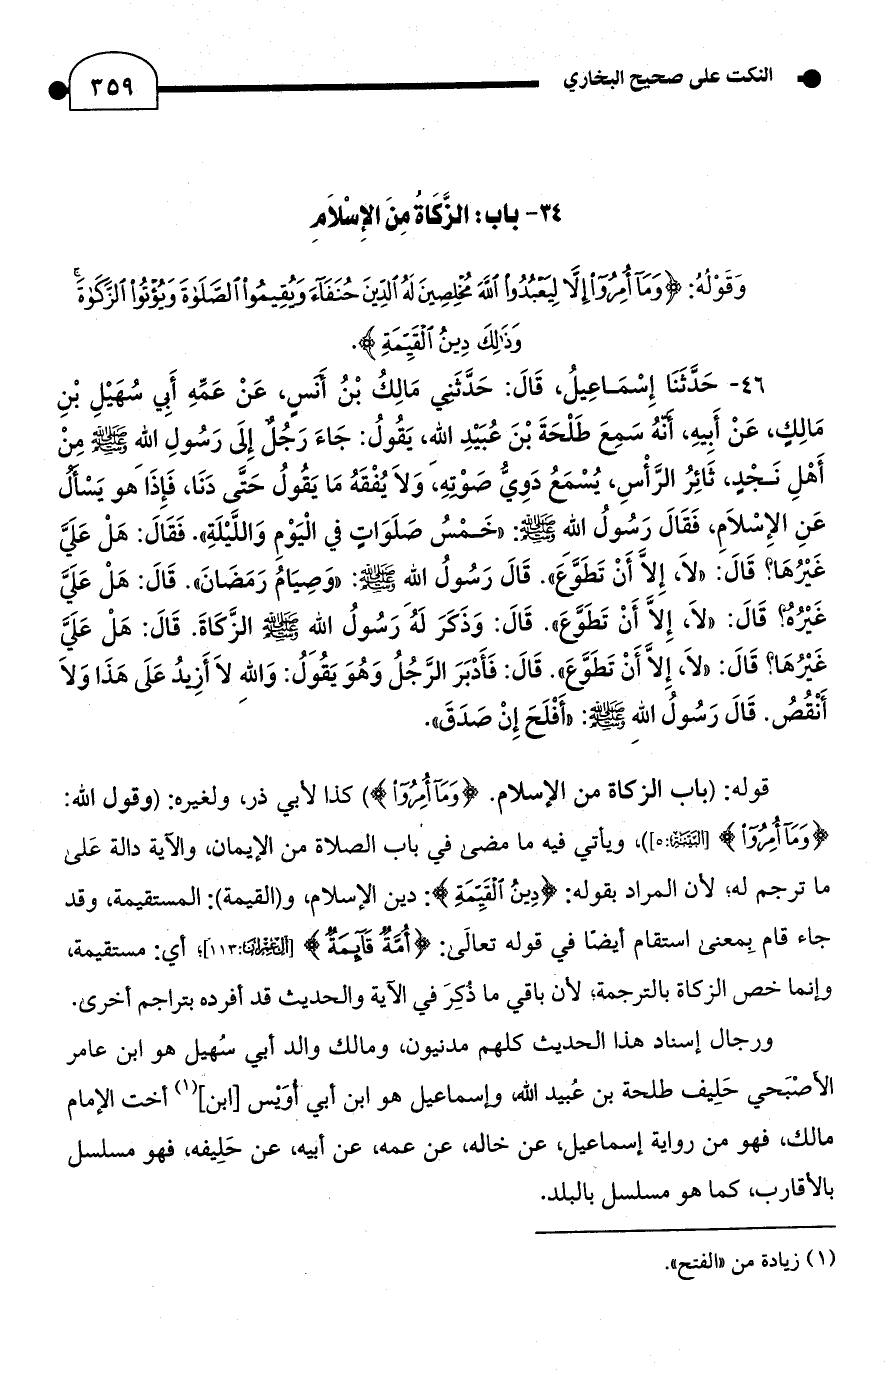 النكت على صحيح البخاري
٣٥٩
٣٤- باب: الزَّكَاةُ مِنَ الإِسْلاَمِ
وَقَوْلُهُ: ﴿وَمَآ أُمِرُوٓا۟ إِلَّا لِيَعْبُدُوا۟ ٱللَّهَ مُخْلِصِينَ لَهُ ٱلدِّينَ حُنَفَآءَ وَيُقِيمُوا۟ ٱلصَّلَوٰةَ وَيُؤْتُوا۟ ٱلزَّكَوٰةَ ۚ
وَذَٰلِكَ دِينُ ٱلْقَيِّمَةِ﴾.
٤٦- حَدَّثَنَا إِسْمَاعِيلُ، قَالَ: حَدَّثَنِي مَالِكُ بْنُ أَنَسٍ، عَنْ عَمِّهِ أَبِي سُهَيْلِ بْنِ
مَالِكٍ، عَنْ أَبِيهِ، أَنَّهُ سَمِعَ طَلْحَةَ بْنَ عُبَيْدِ اللهِ، يَقُولُ: جَاءَ رَجُلٌ إِلَى رَسُولِ اللهِ ﷺ مِنْ
أَهْلِ نَجْدٍ، ثَائِرُ الرَّأْسِ، يُسْمَعُ دَوِيُّ صَوْتِهِ، وَلاَ يُفْقَهُ مَا يَقُولُ حَتَّى دَنَا، فَإِذَا هو يَسْأَلُ
عَنِ الإِسْلاَمِ، فَقَالَ رَسُولُ اللهِ ﷺ: «خَمْسُ صَلَوَاتٍ فِي الْيَوْمِ وَاللَّيْلَةِ». فَقَالَ: هَلْ عَلَيَّ
غَيْرُهَا؟ قَالَ: «لاَ، إِلاَّ أَنْ تَطَوَّعَ». قَالَ رَسُولُ اللهِ ﷺ: «وَصِيَامُ رَمَضَانَ». قَالَ: هَلْ عَلَيَّ
غَيْرُهُ؟ قَالَ: «لاَ، إِلاَّ أَنْ تَطَوَّعَ». قَالَ: وَذَكَرَ لَهُ رَسُولُ اللهِ ﷺ الزَّكَاةَ. قَالَ: هَلْ عَلَيَّ
غَيْرُهَا؟ قَالَ: «لاَ، إِلاَّ أَنْ تَطَوَّعَ». قَالَ: فَأَدْبَرَ الرَّجُلُ وَهُوَ يَقُولُ: وَاللهِ لاَ أَزِيدُ عَلَى هَذَا وَلاَ
أَنْقُصُ. قَالَ رَسُولُ اللهِ ﷺ: «أَفْلَحَ إِنْ صَدَقَ».
قوله: (باب الزكاة من الإسلام. ﴿وَمَآ أُمِرُوٓا۟﴾) كذا لأبي ذر، ولغيره: (وقول الله:
﴿وَمَآ أُمِرُوٓا۟﴾ [البينة:٥])، ويأتي فيه ما مضى في باب الصلاة من الإيمان، والآية دالة عَلى
ما ترجم له؛ لأن المراد بقوله: ﴿دِينُ ٱلْقَيِّمَةِ﴾: دين الإسلام، و(القيمة): المستقيمة، وقد
جاء قام بِمعنى استقام أيضًا في قوله تعالَى: ﴿أُمَّةٌ قَآئِمَةٌ﴾ [آل عمران:١١٣]؛ أي: مستقيمة،
وإنما خص الزكاة بالترجمة؛ لأن باقي ما ذُكِرَ في الآية والحديث قد أفرده بتراجم أخرى.
ورجال إسناد هذا الحديث كلهم مدنيون، ومالك والد أبي سُهيل هو ابن عامر
الأصْبَحي حَلِيف طلحة بن عُبيد الله، وإسماعيل هو ابن أبي أوَيْس [ابن](١) أخت الإمام
مالك، فهو من رواية إسماعيل، عن خاله، عن عمه، عن أبيه، عن حَلِيفه، فهو مسلسل
بالأقارب، كما هو مسلسل بالبلد.
(١) زيادة من «الفتح».